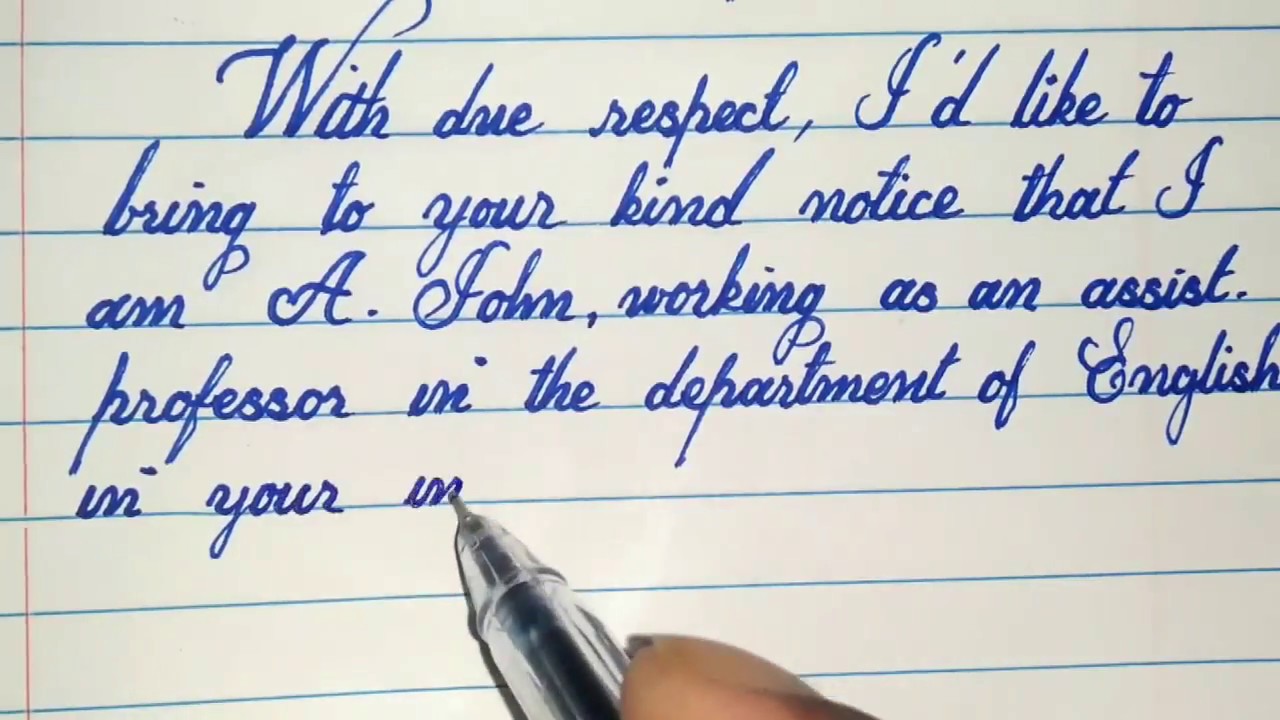 With due respect, I'd like to
bring to your kind notice that I
am A. John, working as an assist.
professor in the department of English
in your in